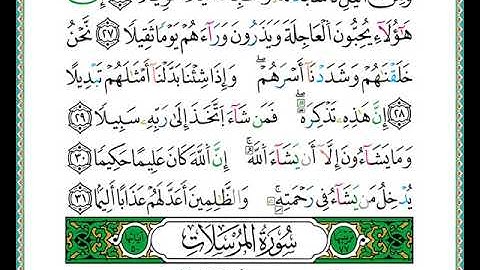 هَٰٓؤُلَآءِ يُحِبُّونَ ٱلْعَاجِلَةَ وَيَذَرُونَ وَرَآءَهُمْ يَوْمًا ثَقِيلًا ٢٧ نَّحْنُ
خَلَقْنَٰهُمْ وَشَدَدْنَآ أَسْرَهُمْ ۖ وَإِذَا شِئْنَا بَدَّلْنَآ أَمْثَٰلَهُمْ تَبْدِيلًا
٢٨ إِنَّ هَٰذِهِۦ تَذْكِرَةٌ ۖ فَمَن شَآءَ ٱتَّخَذَ إِلَىٰ رَبِّهِۦ سَبِيلًا ٢٩
وَمَا تَشَآءُونَ إِلَّآ أَن يَشَآءَ ٱللَّهُ ۚ إِنَّ ٱللَّهَ كَانَ عَلِيمًا حَكِيمًا ٣٠
يُدْخِلُ مَن يَشَآءُ فِى رَحْمَتِهِۦ ۚ وَٱلظَّٰلِمِينَ أَعَدَّ لَهُمْ عَذَابًا أَلِيمًۢا ٣١
سُورَةُ الْمُرْسَلَاتِ